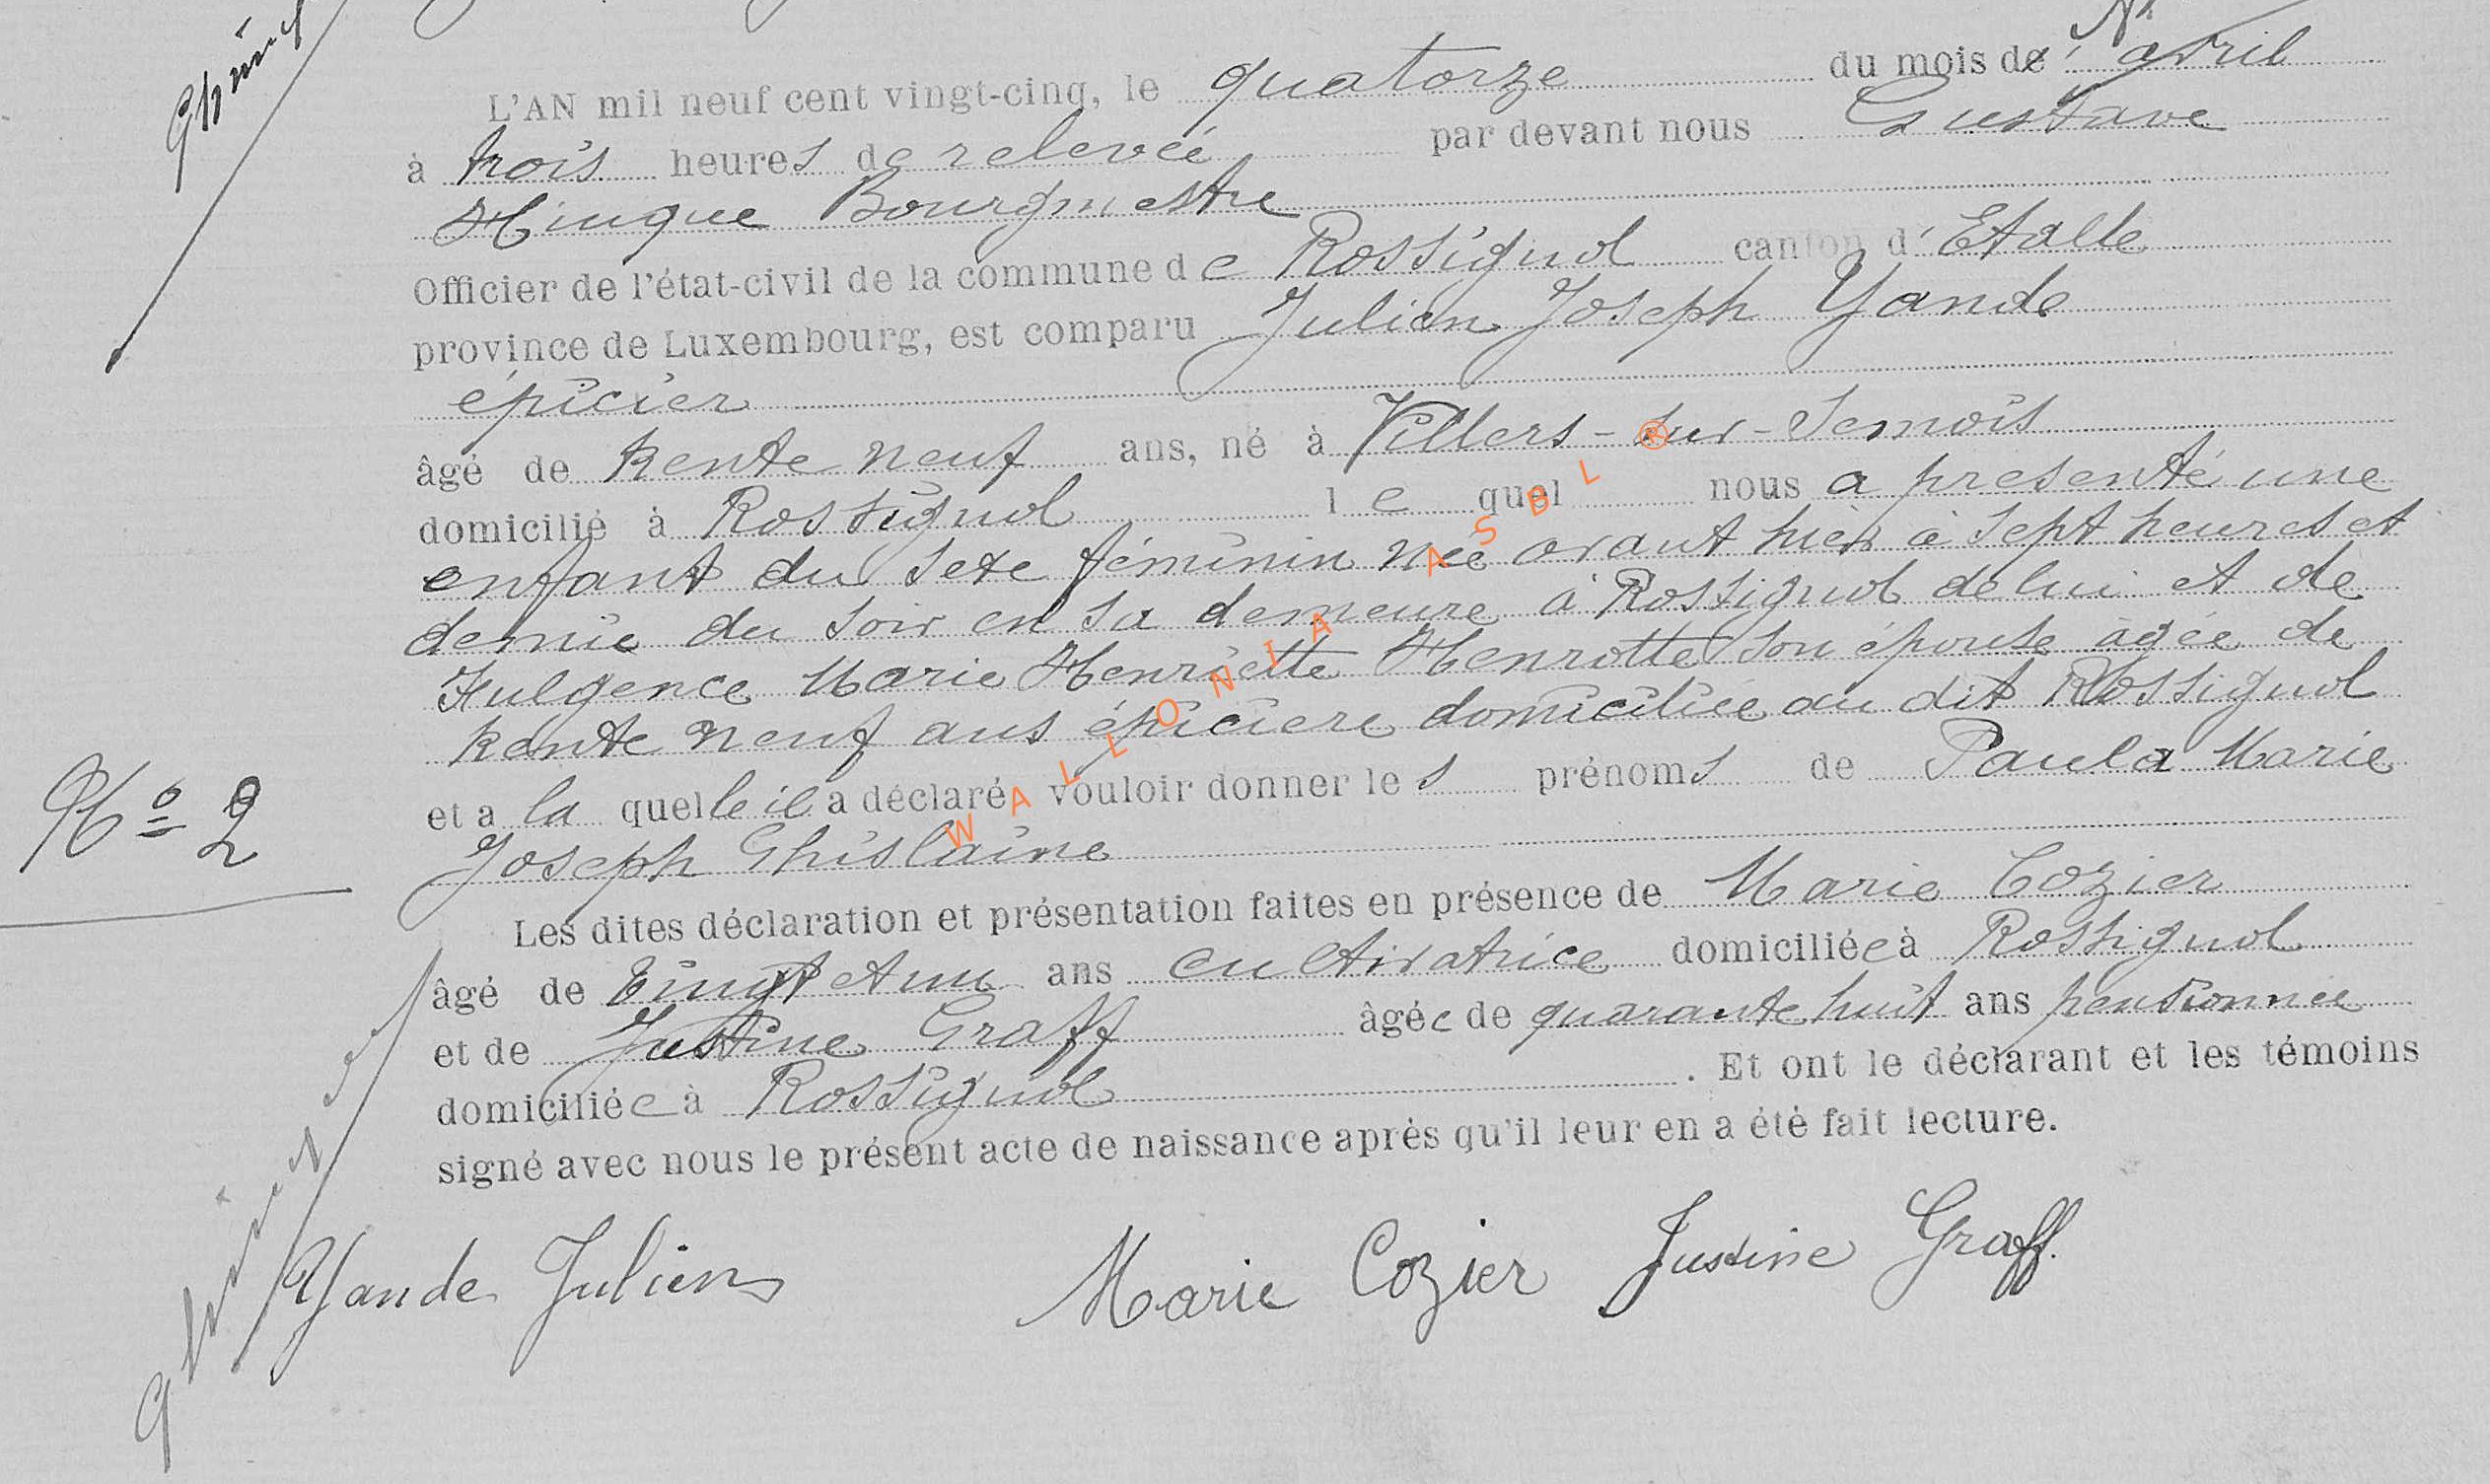 L'AN mil neuf cent vingt-cinq, le quatorze du mois d'avril
à trois heures de relevée par devant nous Gustave
Hinque Bourgmestre
Officier de l'état-civil de la commune de Rossignol canton d'Etalle
province de Luxembourg, est comparu Julien Joseph Yande
épicier
âgé de trente neuf ans, né à Villers-sur-Semois
domicilié à Rossignol le quel nous a presenté une
enfant du sexe féminin née avant hier à sept heures et
demie du soir en sa demeure à Rossignol de lui et de
Fulgence Marie Henriette Henrotte son épouse âgée de
trente neuf ans épicière domiciliée au dit Rossignol
No 2
et a la quelle il a déclaré vouloir donner les prénoms de Paula Marie
Joseph Ghislaine
Les dites déclaration et présentation faites en présence de Marie Cozier
âgé de vingt et un ans cultivatrice domiciliée à Rossignol
et de Justine Graff âgée de quarante huit ans pensionnée
domiciliée à Rossignol. Et ont le déclarant et les témoins
signé avec nous le présent acte de naissance après qu'il leur en a été fait lecture.
Yande Julien Marie Cozier Justine Graff.
WALLONIA ASBL ®